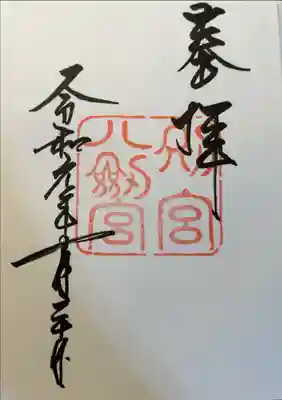 奉拝
別宮
八剣宮
令和元年十月二十日